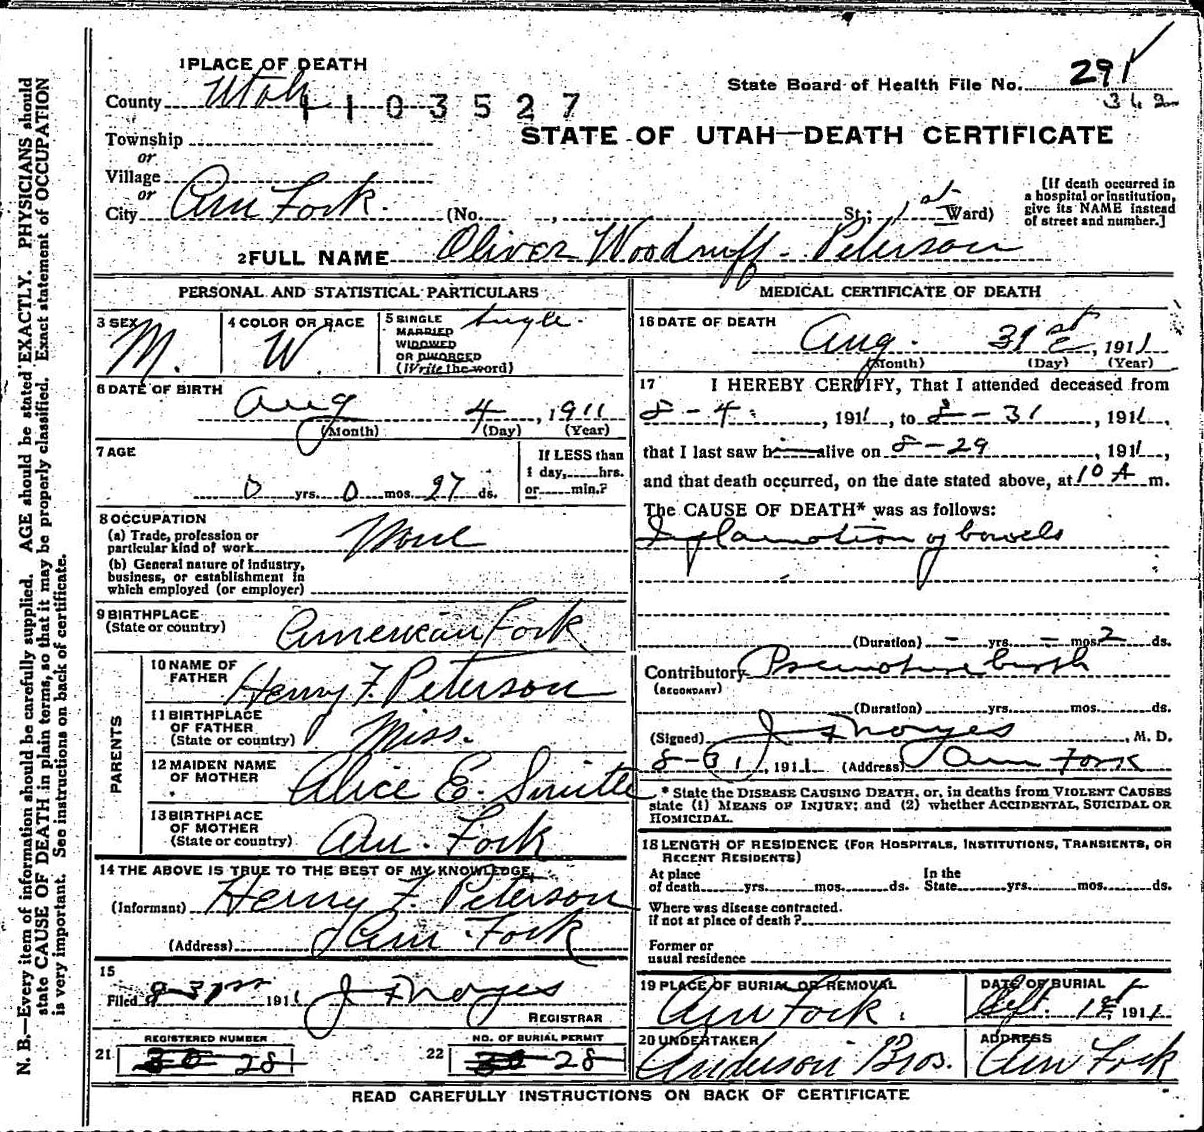 N. B.—Every item of information should be carefully supplied. AGE should be stated EXACTLY. PHYSICIANS should
state CAUSE OF DEATH in plain terms, so that it may be properly classified. Exact statement of OCCUPATION
is very important. See instructions on back of certificate.
1 PLACE OF DEATH
County Utah
1103527
State Board of Health File No. 291
342
STATE OF UTAH—DEATH CERTIFICATE
Township
or
Village
or
City Am Fork. (No. , St.; 1st Ward)
[If death occurred in
a hospital or institution,
give its NAME instead
of street and number.]
2 FULL NAME Oliver Woodruff Peterson
PERSONAL AND STATISTICAL PARTICULARS
3 SEX M.
4 COLOR OR RACE W.
5 SINGLE Single.
MARRIED
WIDOWED
OR DIVORCED
(Write the word)
6 DATE OF BIRTH
Aug 4, 1911
(Month) (Day) (Year)
7 AGE
0 yrs. 0 mos. 27 ds.
If LESS than
1 day, hrs.
or min.?
8 OCCUPATION
(a) Trade, profession or
particular kind of work None
(b) General nature of industry,
business, or establishment in
which employed (or employer)
9 BIRTHPLACE
(State or country) American Fork
PARENTS
10 NAME OF
FATHER Henry F. Peterson
11 BIRTHPLACE
OF FATHER
(State or country) Miss.
12 MAIDEN NAME
OF MOTHER Alice E.
13 BIRTHPLACE
OF MOTHER
(State or country) Am. Fork
14 THE ABOVE IS TRUE TO THE BEST OF MY KNOWLEDGE
(Informant) Henry F. Peterson
(Address) Am Fork
15
Filed 8-31st 1911 J F Noyes
REGISTRAR
REGISTERED NUMBER
21 30 28
NO. OF BURIAL PERMIT
22 30 28
MEDICAL CERTIFICATE OF DEATH
16 DATE OF DEATH
Aug. 31st, 1911
(Month) (Day) (Year)
17 I HEREBY CERTIFY, That I attended deceased from
8-4, 1911, to 8-31, 1911,
that I last saw h alive on 8-29, 1911,
and that death occurred, on the date stated above, at 10 A m.
The CAUSE OF DEATH* was as follows:
Inflamotion of bowels
(Duration) - yrs. - mos. 2 ds.
Contributory Premature birth
(SECONDARY)
(Duration) yrs. mos. ds.
(Signed) J F Noyes, M. D.
8-31, 1911 (Address) Am Fork
* State the DISEASE CAUSING DEATH, or, in deaths from VIOLENT CAUSES
state (1) MEANS OF INJURY; and (2) whether ACCIDENTAL, SUICIDAL OR
HOMICIDAL.
18 LENGTH OF RESIDENCE (FOR HOSPITALS, INSTITUTIONS, TRANSIENTS, OR
RECENT RESIDENTS)
At place In the
of death yrs. mos. ds. State yrs. mos. ds.
Where was disease contracted.
if not at place of death?
Former or
usual residence
19 PLACE OF BURIAL OR REMOVAL
Am Fork.
DATE OF BURIAL
Sept. 1st, 1911
20 UNDERTAKER
Anderson Bros.
ADDRESS
Am Fork
READ CAREFULLY INSTRUCTIONS ON BACK OF CERTIFICATE